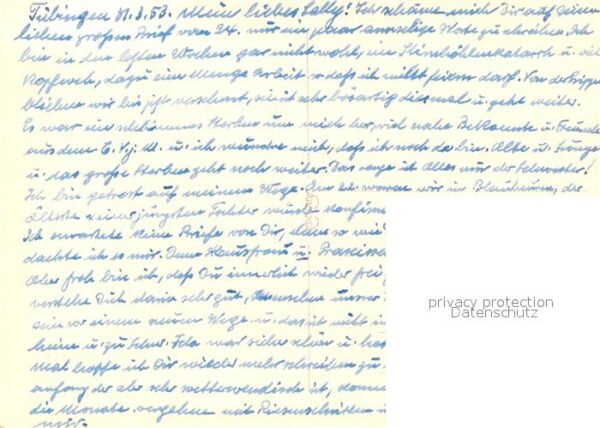 Tübingen 31.3.53. Mein liebes Lally! Ich schäme mich Dir auf Deinen
lieben großen Brief vom 24. nur ein paar armselige Worte zu schreiben. Ich
bin in den letzten Wochen gar nicht wohl, ein Stirnhöhlenkatarrh u. viel
Kopfweh, dazu eine Menge Arbeit so daß ich nicht feiern darf. Von der Grippe
blieben wir bis jetzt verschont, sie ist sehr bösartig diesmal u. geht weiter.
Es war ein schlimmes Sterben um mich her, viel nahe Bekannte u. Freunde
aus dem C.V.J.M. u. ich wundre mich, daß ich noch da bin. Alte u. Junge
u. das große Sterben geht noch weiter. Das sage ich Alles nur der Schwester!
Ich bin getrost auf meinem Wege. Am 22. waren wir in Blaubeuren, der
Älteste meiner jüngsten Tochter wurde konfirm
Ich erwartete keine Briefe von Dir, denn so
dachte ich es mir. Denn Hausfrau u.
Aber froh bin ich, daß Du innerlich wieder frei
verstehe Dich darin sehr gut, Menschen unsrer
sein vor einem neuen Wege u. das ist nicht
u. zu schwer. war sicher schön u.
Mal hoffe ich Dir wieder mehr schreiben zu
anfang der aber sehr wetterwendisch ist,
die Monate vergehen mit Riesenschritten
mir.
privacy protection
Datenschutz